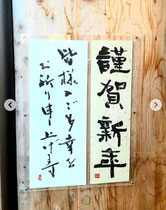 謹賀新年
皆様のご多幸を
お祈り申し上げます